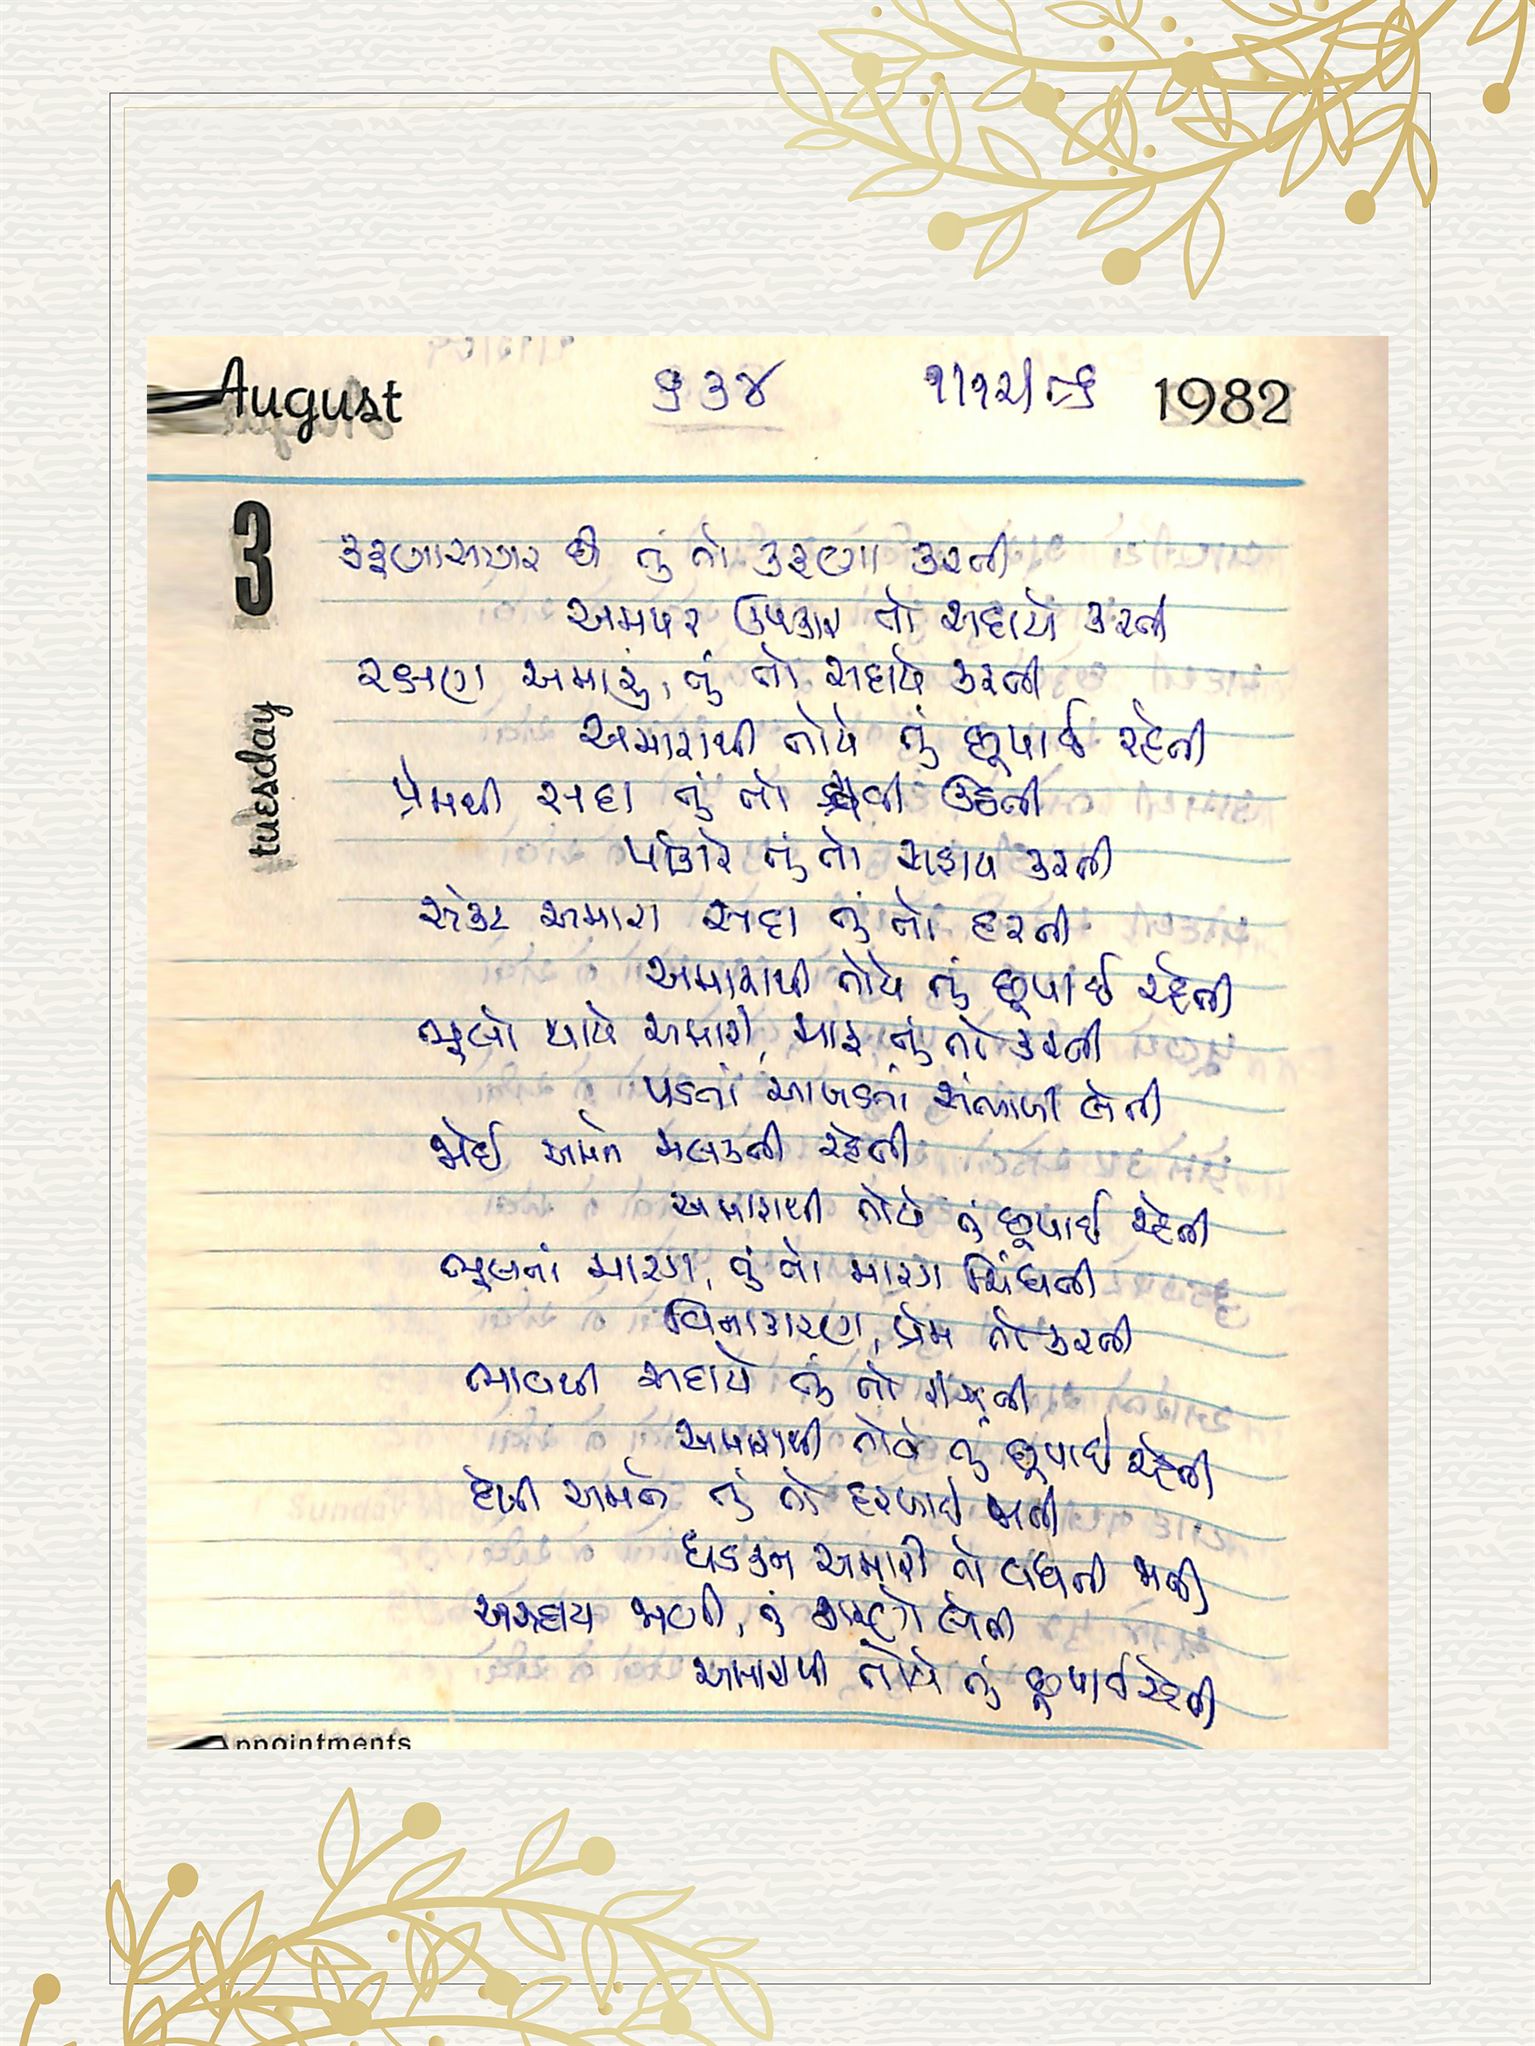 August ૬૩૪ 1982
3
tuesday
કરૂણાસાગર છે તું તો કરૂણા કરતી
અમપર ઉપકાર તો સદાયે કરતી
રક્ષણ અમારું, તું તો સદાયે કરતી
અમારાથી તોયે તું છૂપાઈ રહેતી
પ્રેમથી સદા તું તો ઉઠતી
પુકારે તું તો સહાય કરતી
સંકટ અમારા સદા તું તો હરતી
અમારાથી તોયે તું છૂપાઈ રહેતી
ભૂલો થાયે અમારી, માફ તું તો કરતી
પડતાં આખડતાં સંભાળી લેતી
જોઈ અમને મલકતી રહેતી
અમારાથી તોયે તું છૂપાઈ રહેતી
ભૂલતાં મારગ, તું તો મારગ ચિંધતી
વિનાકારણ, પ્રેમ તો કરતી
ભાવથી સદાયે તું તો રીઝતી
અમારાથી તોયે તું છૂપાઈ રહેતી
દેખી અમને તું તો હરખાઈ જાતી
ધડકન અમારી તો વધતી જાતી
અસહાય જાણી, તું શરણે લેતી
અમારાથી તોયે તું છૂપાઈ રહેતી
Appointments